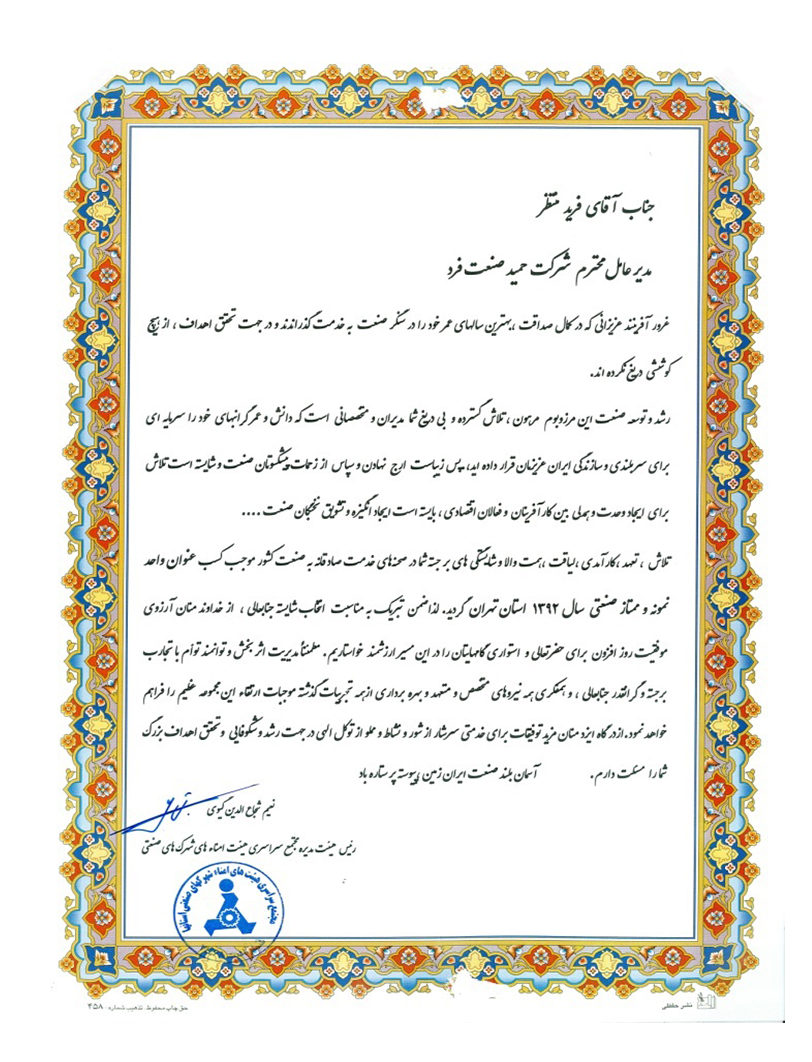 جناب آقای فرید منتظر
مدیر عامل محترم شرکت حمید صنعت فرد
غرور آفرینند عزیزانی که در کمال صداقت ، بهترین سالهای عمر خود را در سنگر صنعت به خدمت گذراندند و در جهت تحقق اهداف ، از هیچ
کوششی دریغ نکرده اند.
رشد و توسعه صنعت این مرزوبوم مرهون ، تلاش گسترده و بی دریغ شما مدیران و متخصصانی است که دانش و عمر گرانبهای خود را سرمایه ای
برای سربلندی و سازندگی ایران عزیزمان قرار داده اید، پس زیباست ارج نهادن و سپاس از زحمات پیشکسوتان صنعت و شایسته است تلاش
برای ایجاد وحدت و همدلی بین کارآفرینان و فعالان اقتصادی ، بایسته است ایجاد انگیزه و تشویق نخبگان صنعت ....
تلاش ، تعهد ،کارآمدی ،لیاقت ،همت والا و شایستگی های برجسته شما در صحنه های خدمت صادقانه به صنعت کشور موجب کسب عنوان واحد
نمونه و ممتاز صنعتی سال ۱۳۹۲ استان تهران گردید. لذا ضمن تبریک به مناسبت انتخاب شایسته جنابعالی ، از خداوند منان آرزوی
موفقیت روز افزون برای حضرتعالی و استواری گامهایتان را در این مسیر ارزشمند خواستاریم. مطمئناً مدیریت اثر بخش و توانمند توأم با تجارب
برجسته و گرانقدر جنابعالی ، و همفکری همه نیروهای متخصص و متعهد و بهره برداری از همه تجربیات گذشته موجبات ارتقاء این مجموعه عظیم را فراهم
خواهد نمود. از درگاه ایزد منان مزید توفیقات برای خدمتی سرشار از شور و نشاط و مملو از توکل الهی در جهت رشد و شکوفایی و تحقق اهداف بزرگ
شما را مسئلت دارم . آسمان بلند صنعت ایران زمین پیوسته پر ستاره باد
نعیم شجاع الدین گیوی
رئیس هیئت مدیره مجتمع سراسری هیئت امناء های شهرک های صنعتی
مجتمع سراسری هیئت های امناء شهرکهای صنعتی استانها
نشر حافظی
حق چاپ محفوظ. تذهیب شماره : ۴۵۸